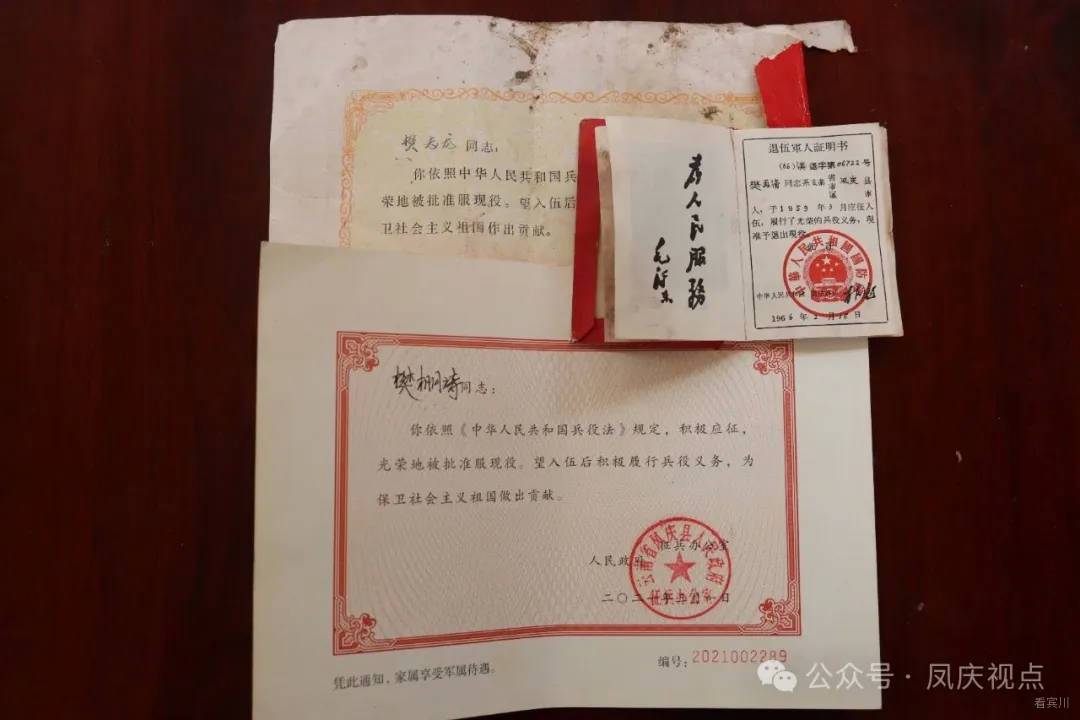 樊志龙 同志:
你依照中华人民共和国兵
荣地被批准服现役。望入伍后
卫社会主义祖国作出贡献。
为人民服務
毛泽东
退伍軍人証明书
(66)滇退字第06722号
同志系 凤庆县
人,于1959年3月应征入
伍,履行了光荣的兵役义务,现
准予退出現役。
中華人民共和國國防部
中华人民共和国
1966年2月18日
樊栩琦同志:
你依照《中华人民共和国兵役法》规定,积极应征,
光荣地被批准服现役。望入伍后积极履行兵役义务,为
保卫社会主义祖国做出贡献。
征兵办公室
人民政府
云南省凤庆县人民政府
征兵办公室
二〇二一年 月一日
凭此通知,家属享受军属待遇。
编号:2021002289
公众号·凤庆视点
看宾川